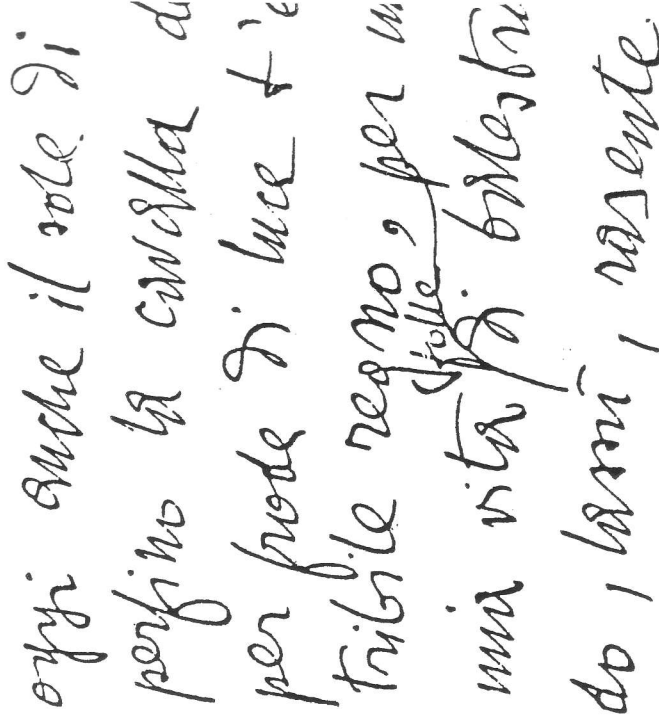 oggi anche il sole di
perfino la cavalla d
per frode di luce t'e
tribile regno, per un
folle
mia vita di bilestru
do, lassù, rasente